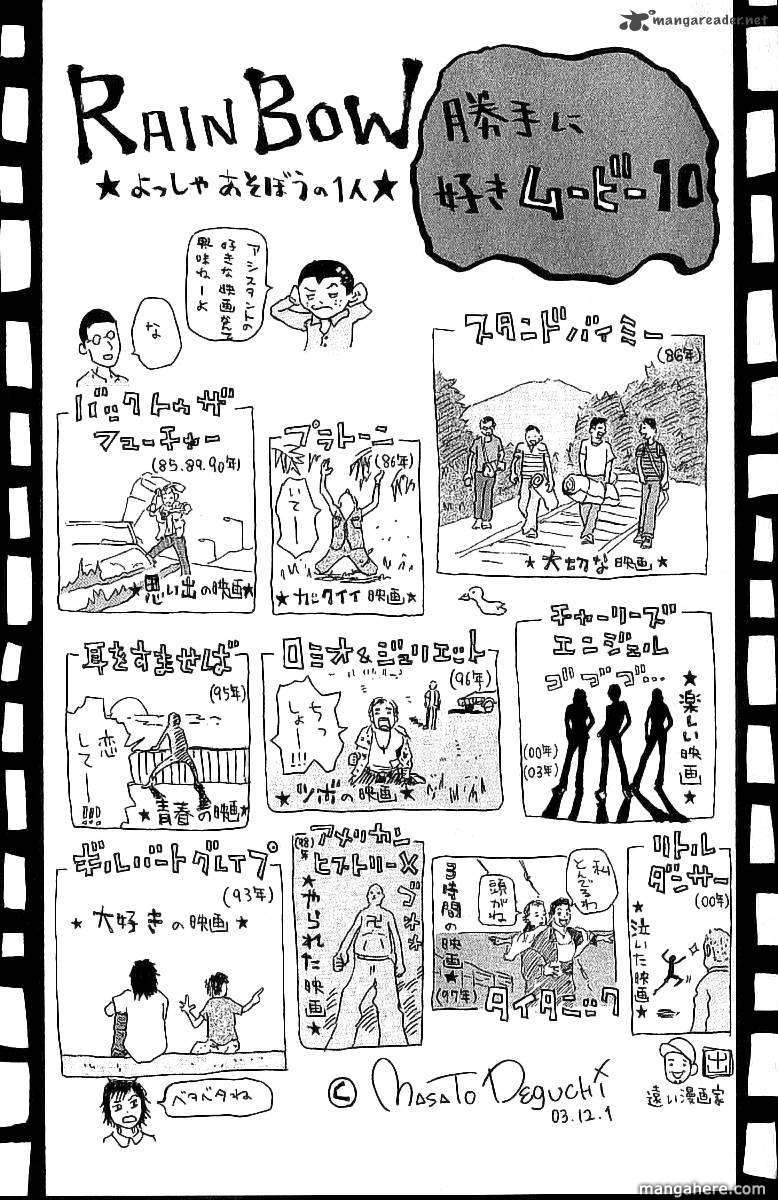 mangareader.net
RAINBOW
★よっしゃあそぼうの1人★
勝手に
好きムービー10
アシスタントの
好きな映画なんて
興味ねーよ
な
スタンドバイミー
(86年)
★大切な映画★
バックトゥザ
フューチャー
(85.89.90年)
★思い出の映画★
プラトーン
(86年)
いてーー
★カックイイ映画★
耳をすませば
(95年)
恋
して
!!!
★青春の映画★
ロミオ&ジュリエット
(96年)
ちっ
しょー!!!
★ツボの映画★
チャーリーズ
エンジェル
ゴゴゴ…
(00年)
(03年)
★楽しい映画★
ギルバートグレイプ
(93年)
★大好きの映画★
アメリカン
ヒストリーX
(98年)
★やられた映画★
私
とんでるわ
頭がね
3時間の映画★
(97年)
タイタニック
リトル
ダンサー
(00年)
★泣いた映画★
ベタベタね
© MASATO DEGUCHI
03.12.1
出
遠い漫画家
mangahere.com